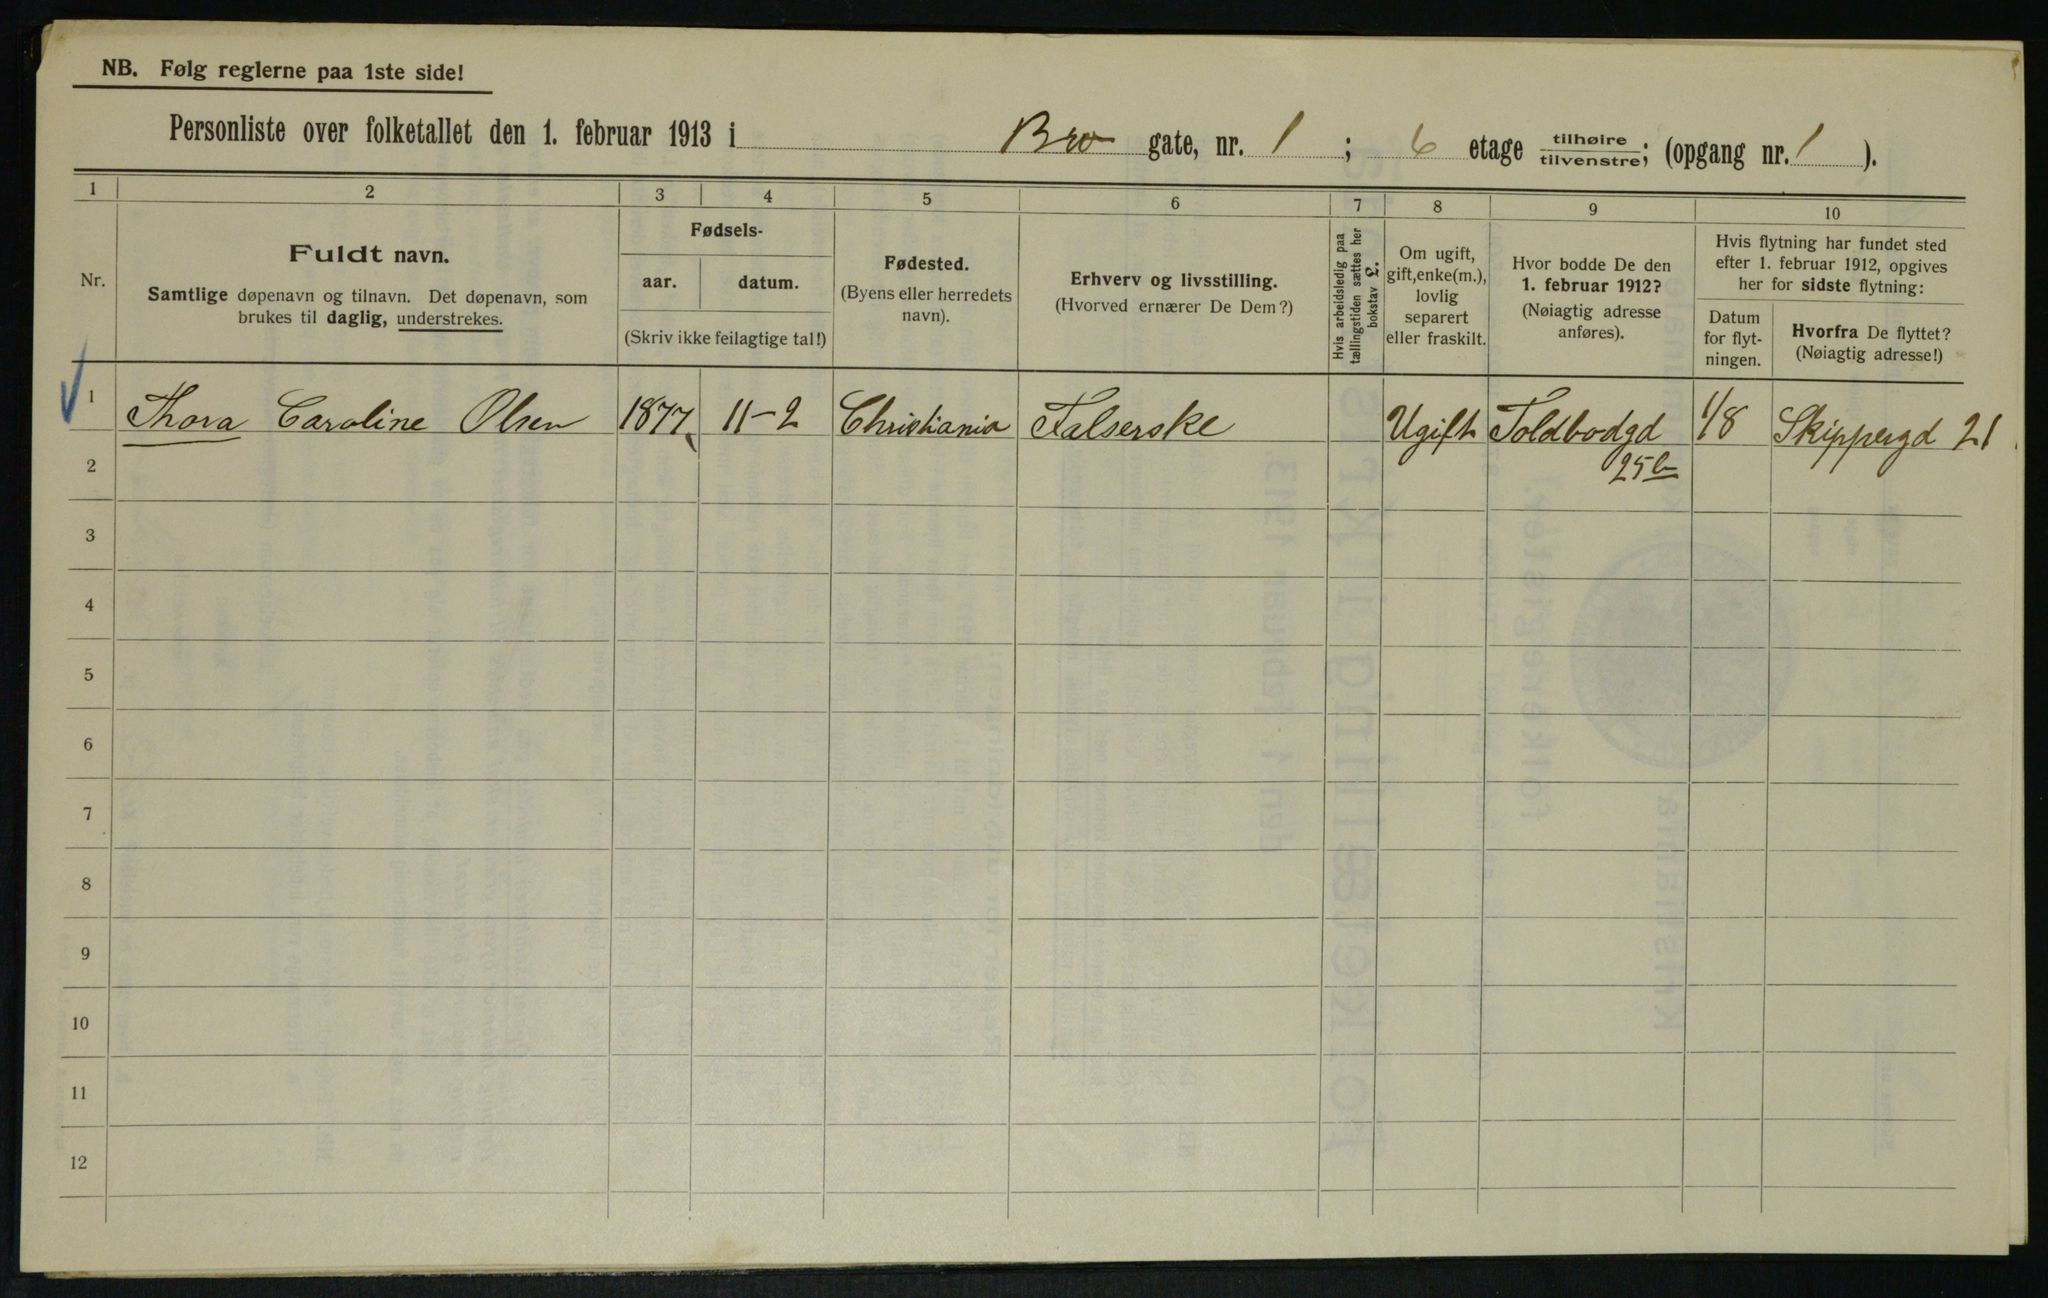 NB. Følg reglerne paa 1ste side!
Personliste over folketallet den 1. februar 1913 i Bro gate, nr. 1 ; 6 etage tilhøire/tilvenstre; (opgang nr. 1 ).
1 2 3 4 5 6 7 8 9 10
Nr.
Fuldt navn.
Samtlige døpenavn og tilnavn. Det døpenavn, som
brukes til daglig, understrekes.
Fødsels-
aar. datum.
(Skriv ikke feilagtige tal!)
Fødested.
(Byens eller herredets
navn).
Erhverv og livsstilling.
(Hvorved ernærer De Dem?)
Hvis arbeidsledig paa
tællingstiden sættes her
bokstav L.
Om ugift,
gift, enke(m.),
lovlig
separert
eller fraskilt.
Hvor bodde De den
1. februar 1912?
(Nøiagtig adresse
anføres).
Hvis flytning har fundet sted
efter 1. februar 1912, opgives
her for sidste flytning:
Datum
for flyt-
ningen.
Hvorfra De flyttet?
(Nøiagtig adresse!)
1 Thora Caroline Olsen 1877 11-2 Christiania Falserske Ugift Toldbodgd 1/8 Skippergd 21
25
2
3
4
5
6
7
8
9
10
11
12